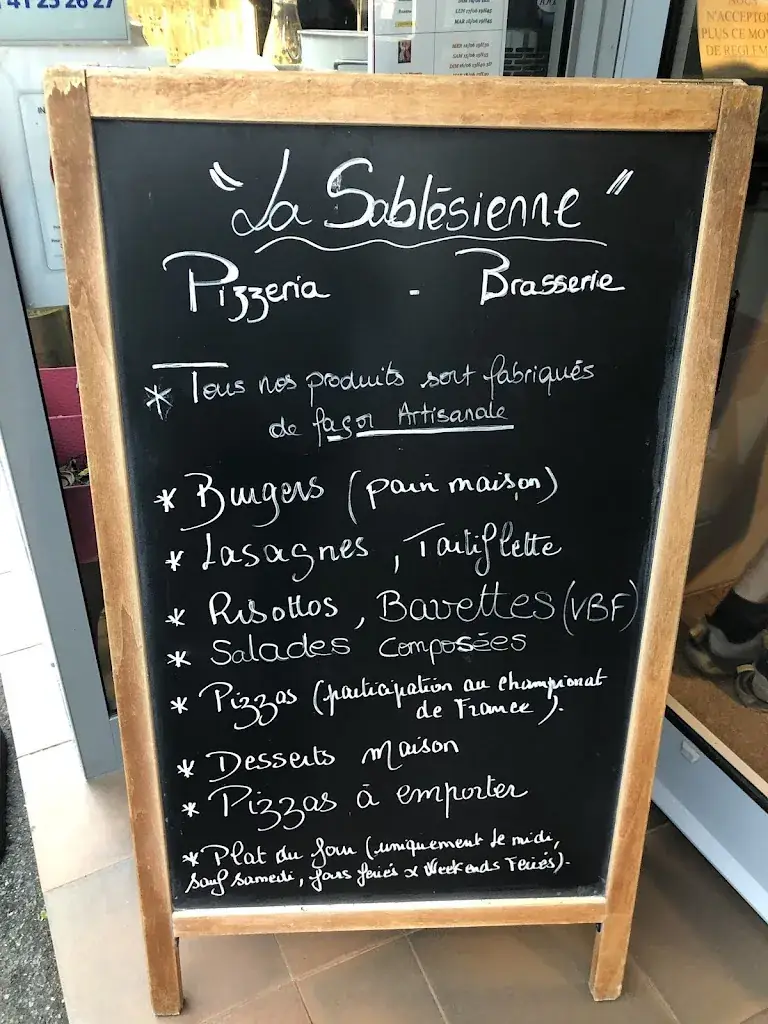 41 23 26 27
NOUS
N'ACCEPTO
PLUS CE MO
DE REGLEM
"La Sablésienne"
Pizzeria - Brasserie
* Tous nos produits sont fabriqués
de façon Artisanale
* Burgers (pain maison)
* Lasagnes, Tartiflette
* Risottos, Bavettes (VBF)
* Salades composées
* Pizzas (participation au championnat
de France).
* Desserts maison
* Pizzas à emporter
* Plat du Jour (uniquement le midi,
sauf samedi, jours fériés & Week ends Fériés).